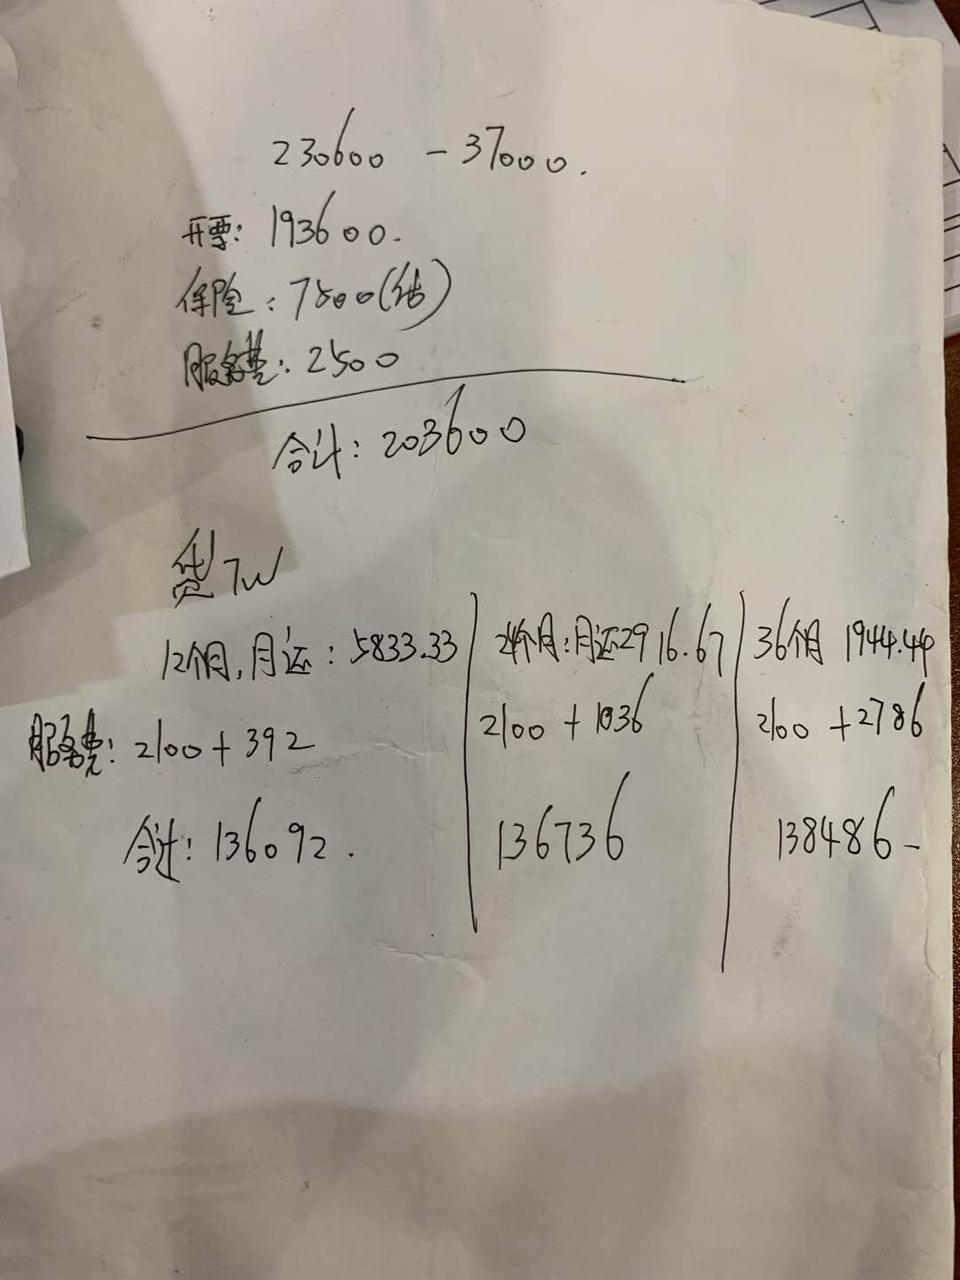 230600 - 37000.
开票: 193600.
保险: 7500(估)
服务费: 2500
合计: 203600
贷7W
12个月,月还: 5833.33
24个月:月还2916.67
36个月 1944.44
服务费: 2100 + 392
2100 + 1036
2100 + 2786
合计: 136092.
136736
138486-